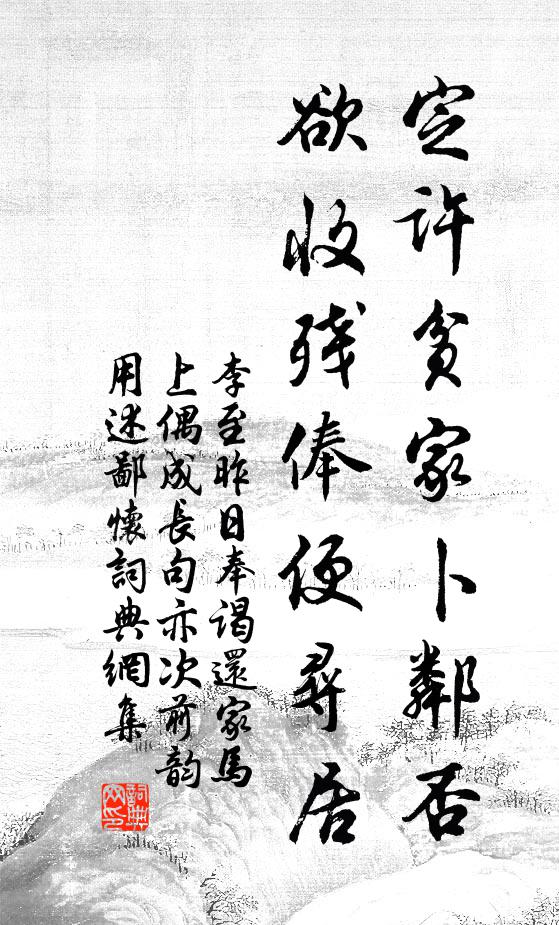 定许贫家卜鄰否
欲收残俸便尋居
李至昨日奉谒還家馬
上偶成長句亦次前韵
用述鄙懷詞典網集